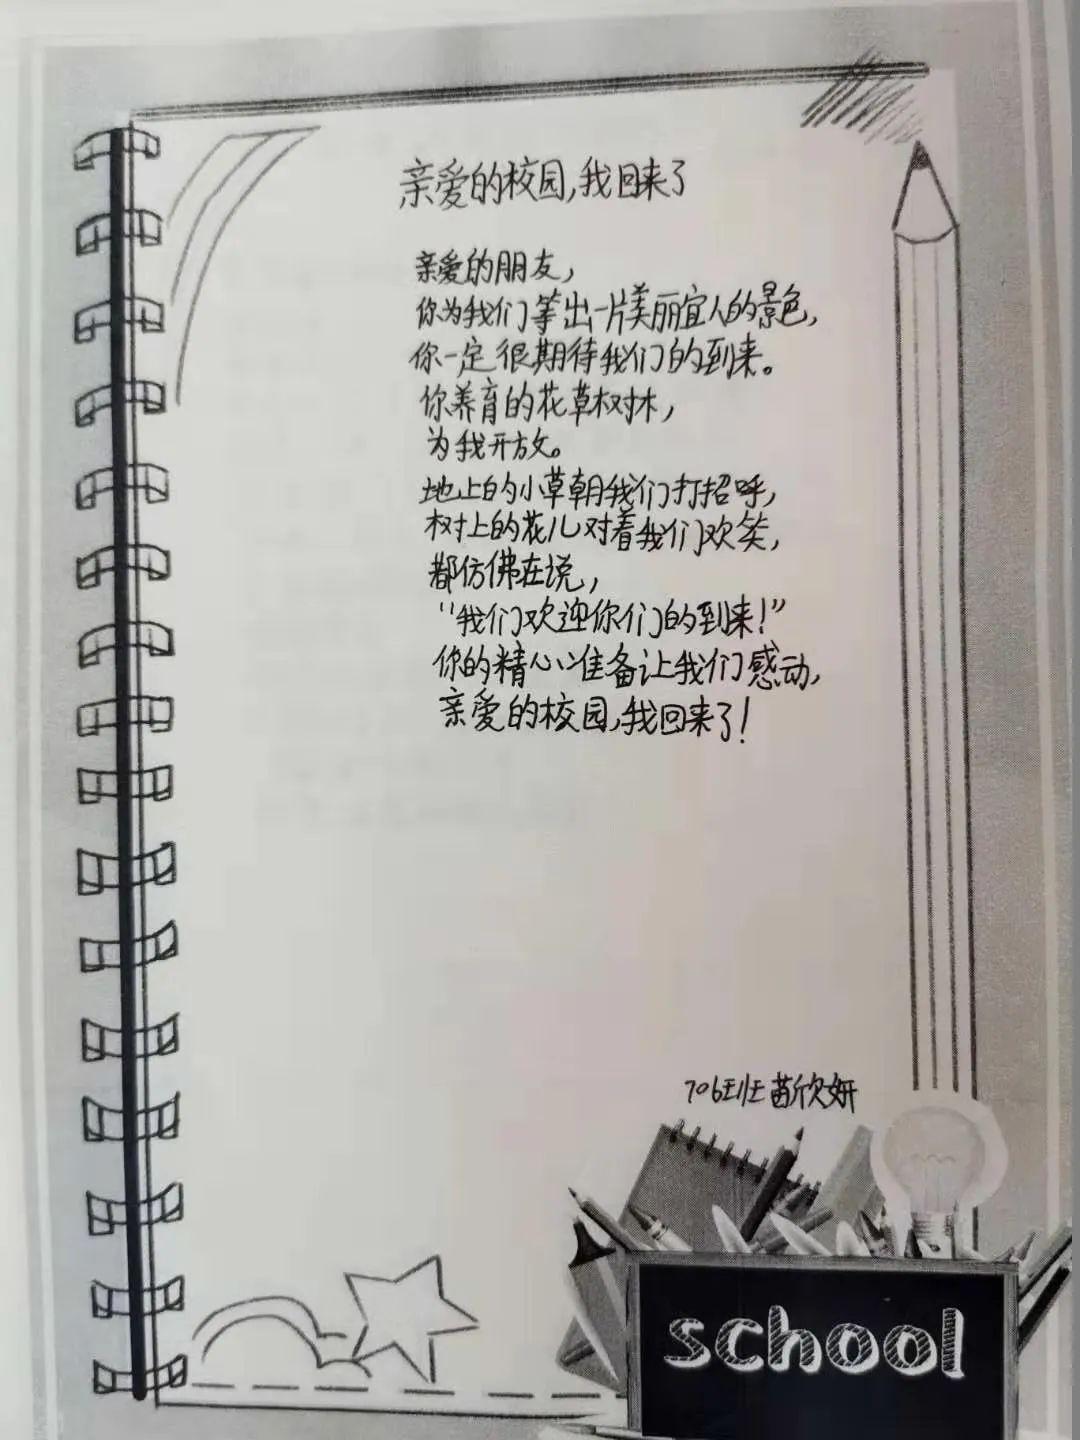 亲爱的校园,我回来了
亲爱的朋友,
你为我们筹出一片美丽宜人的景色,
你一定很期待我们的到来。
你养育的花草树木,
为我开放。
地上的小草朝我们打招呼,
树上的花儿对着我们欢笑,
都仿佛在说,
“我们欢迎你们的到来!”
你的精心准备让我们感动,
亲爱的校园,我回来了!
706班 苗欣妍
school